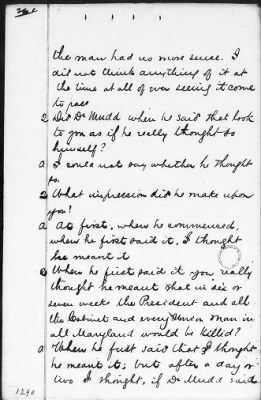 the man had no more sense. I
did not think anything of it at
the time at all of ever seeing it come
to pass
Q Did Dr Mudd when he said that look
to you as if he really thought so
himself?
A I could not say whether he thought
so.
Q What impression did he make upon
you?
A At first, when he commenced,
when he first said it, I thought
he meant it
Q When he first said it you really
thought he meant that in six or
seven weeks the President and all
the Cabinet and every Union man in
all Maryland would be killed?
A When he first said that I thought
he meant it; but after a day or
two I thought, if Dr Mudd said
1290